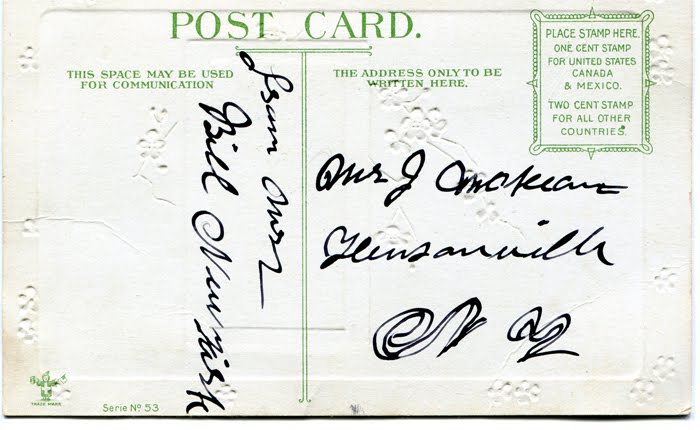 POST CARD.
THIS SPACE MAY BE USED
FOR COMMUNICATION
THE ADDRESS ONLY TO BE
WRITTEN HERE.
PLACE STAMP HERE.
ONE CENT STAMP
FOR UNITED STATES
CANADA
& MEXICO.
TWO CENT STAMP
FOR ALL OTHER
COUNTRIES.
from Mrs
Bill Newkirk
Mrs J
N Y
TRADE MARK
Serie Nº 53